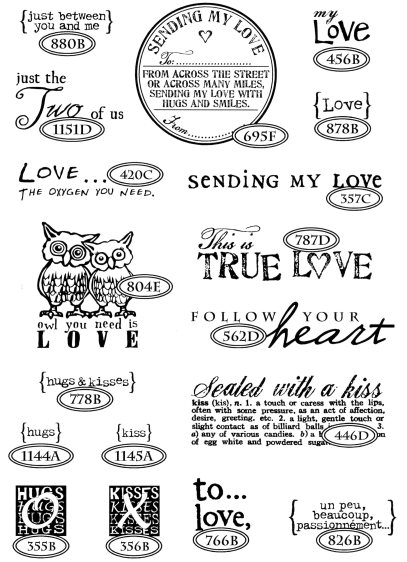 {just between}
you and me
880B
SENDING MY LOVE
To:
FROM ACROSS THE STREET
OR ACROSS MANY MILES,
SENDING MY LOVE WITH
HUGS AND SMILES.
From
695F
my
Love
456B
just the
Two of us
1151D
{Love}
878B
LOVE...
420C
THE OXYGEN YOU NEED.
SENDING MY LOVE
357C
owl you need is
LOVE
804E
This is
787D
TRUE LOVE
FOLLOW YOUR
562D
heart
{hugs & kisses}
778B
{hugs}
1144A
{kiss}
1145A
Sealed with a kiss
kiss (kis), n. 1. a touch or caress with the lips,
often with some pressure, as an act of affection,
desire, greeting, etc. 2. a light, gentle touch or
slight contact as of billiard balls 3.
a) any of various candies. b) a b on
of egg white and powdered sugar
446D
HUGS
HUGS
HUGS
HUGS
O
355B
KISSES
KISSES
KISSES
KISSES
X
356B
to...
love,
766B
{un peu,
beaucoup,
passionnément...}
826B